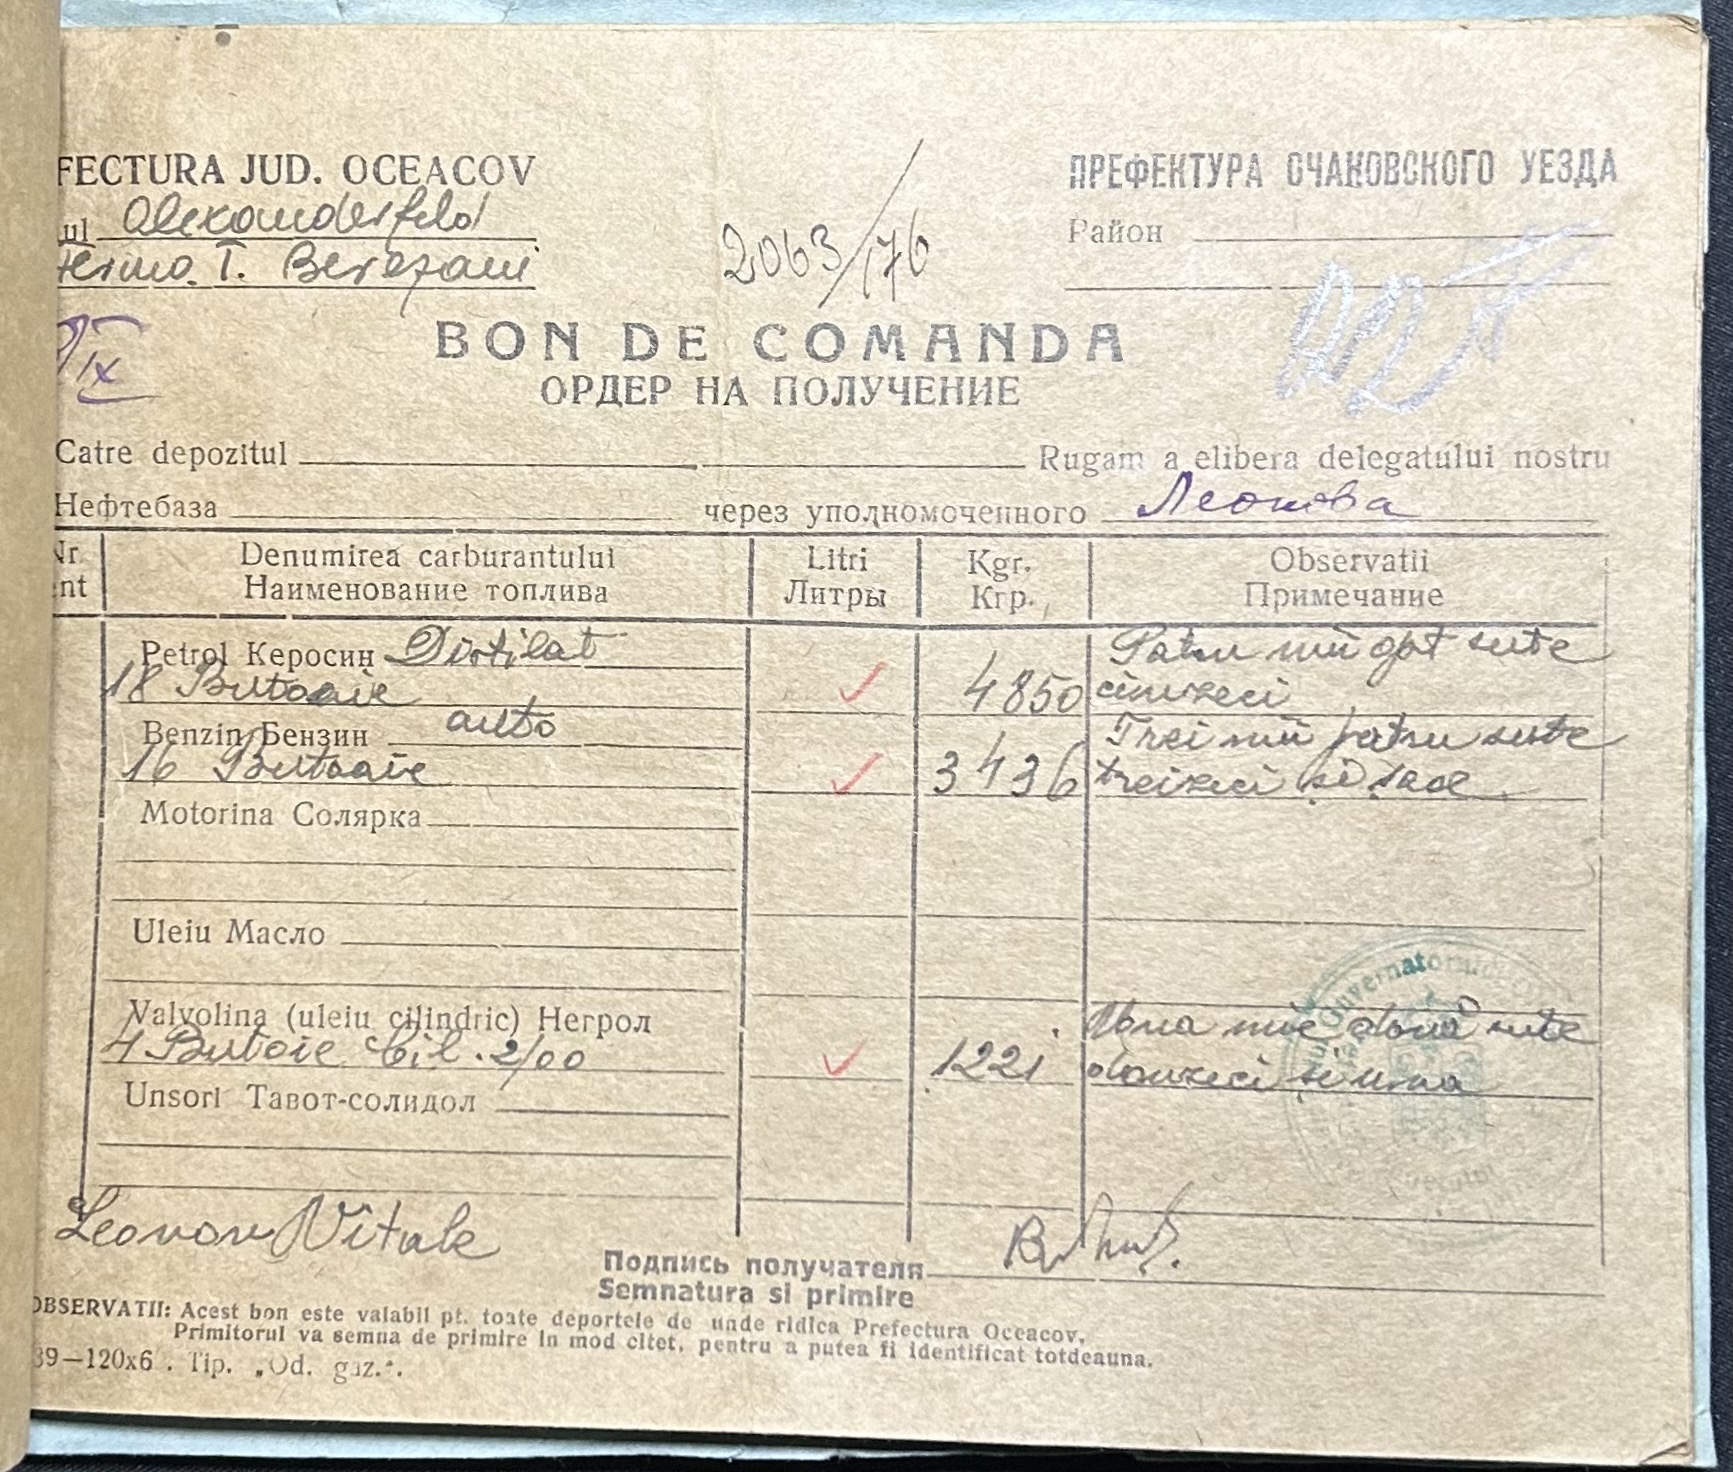 FECTURA JUD. OCEACOV
ПРЕФЕКТУРА ОЧАКОВСКОГО УЕЗДА
ul Alexanderfeld
Район
T. Berezani
2063/176
IX
BON DE COMANDA
ОРДЕР НА ПОЛУЧЕНИЕ
Catre depozitul Rugam a elibera delegatului nostru
Нефтебаза через уполномоченного Леонова
Nr. Denumirea carburantului Litri Kgr. Observatii
ent Наименование топлива Литры Кгр. Примечание
Petrol Керосин Distilat Patru mii opt sute
18 Butoaie 4850 cinzeci
Benzin Бензин auto Trei mii patru sute
16 Butoaie 3436 treizeci și șase
Motorina Солярка
Uleiu Масло
Valvolina (uleiu cilindric) Негрол Una mie două sute
4 Butoie Cil. 2/00 1221 douăzeci și una
Unsori Тавот-солидол
Leonov Vitale
Подпись получателя
Semnatura si primire
OBSERVATII: Acest bon este valabil pt. toate deportele de unde ridica Prefectura Oceacov,
Primitorul va semna de primire in mod citet, pentru a putea fi identificat totdeauna.
39—120x6. Tip. „Od. gaz.".